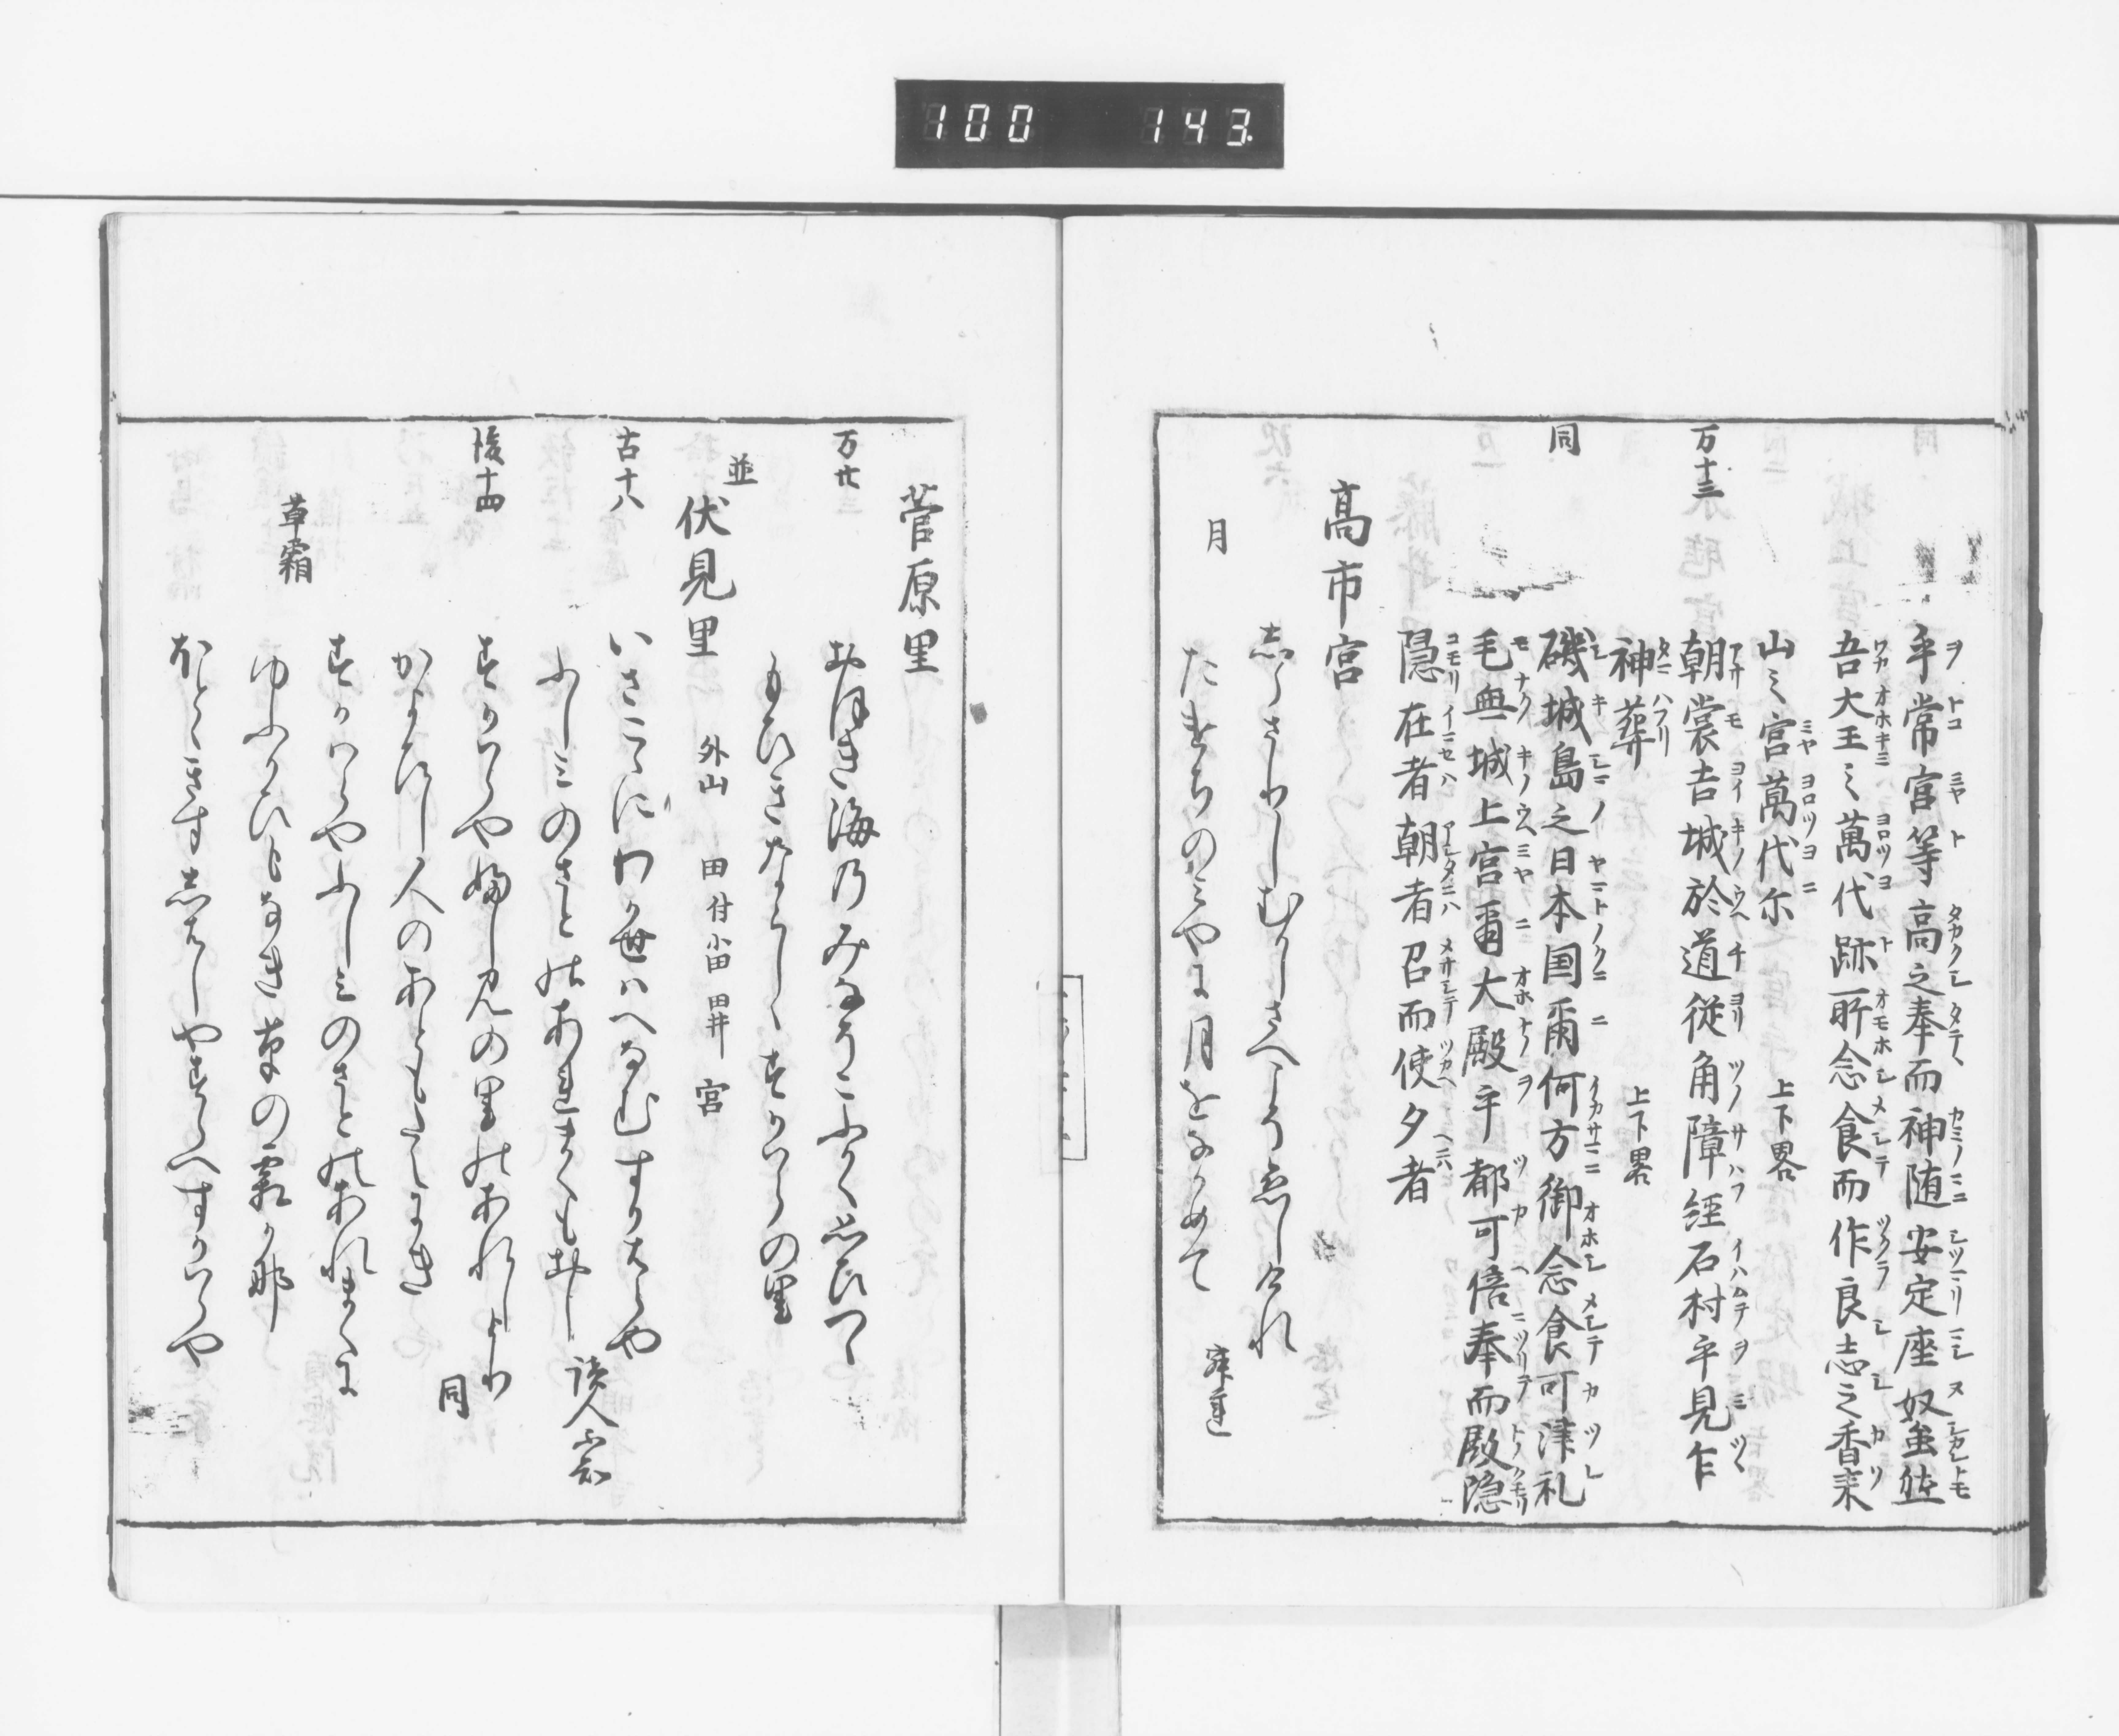 100 143
乎常宮等高之奉而神随安定座奴雖然
吾大王之萬代跡所念食而作良志之香来
山之宮萬代尓 上下畧
万十三 朝裳吉城於道従角障経石村乎見乍
神葬 上下畧
同 磯城島之日本国爾何方御念食可津礼
毛無城上宮爾大殿乎都可倍奉而殿隠
隠在者朝者召而使夕者
高市宮
月
たけちのみやに月をなかめて 寂蓮
菅原里
万廿 おほき海のみなそこふかく思ひつゝ
もひきならしゝすかはらの里
並 伏見里 外山 田 付小田 田井 宮
古十八 いさこゝにわか世はへなむすかはらや
ふしみのさとのあれまくもおし 読人不知
後十四 すかはらや伏し見の里のあれしより
かよひし人のあともたえにき 同
すかはらやふしみのさとのあれまくに
草霜 ゆふかひもなき草の霜か那
ほとゝきすしはしやすらへすかはらや